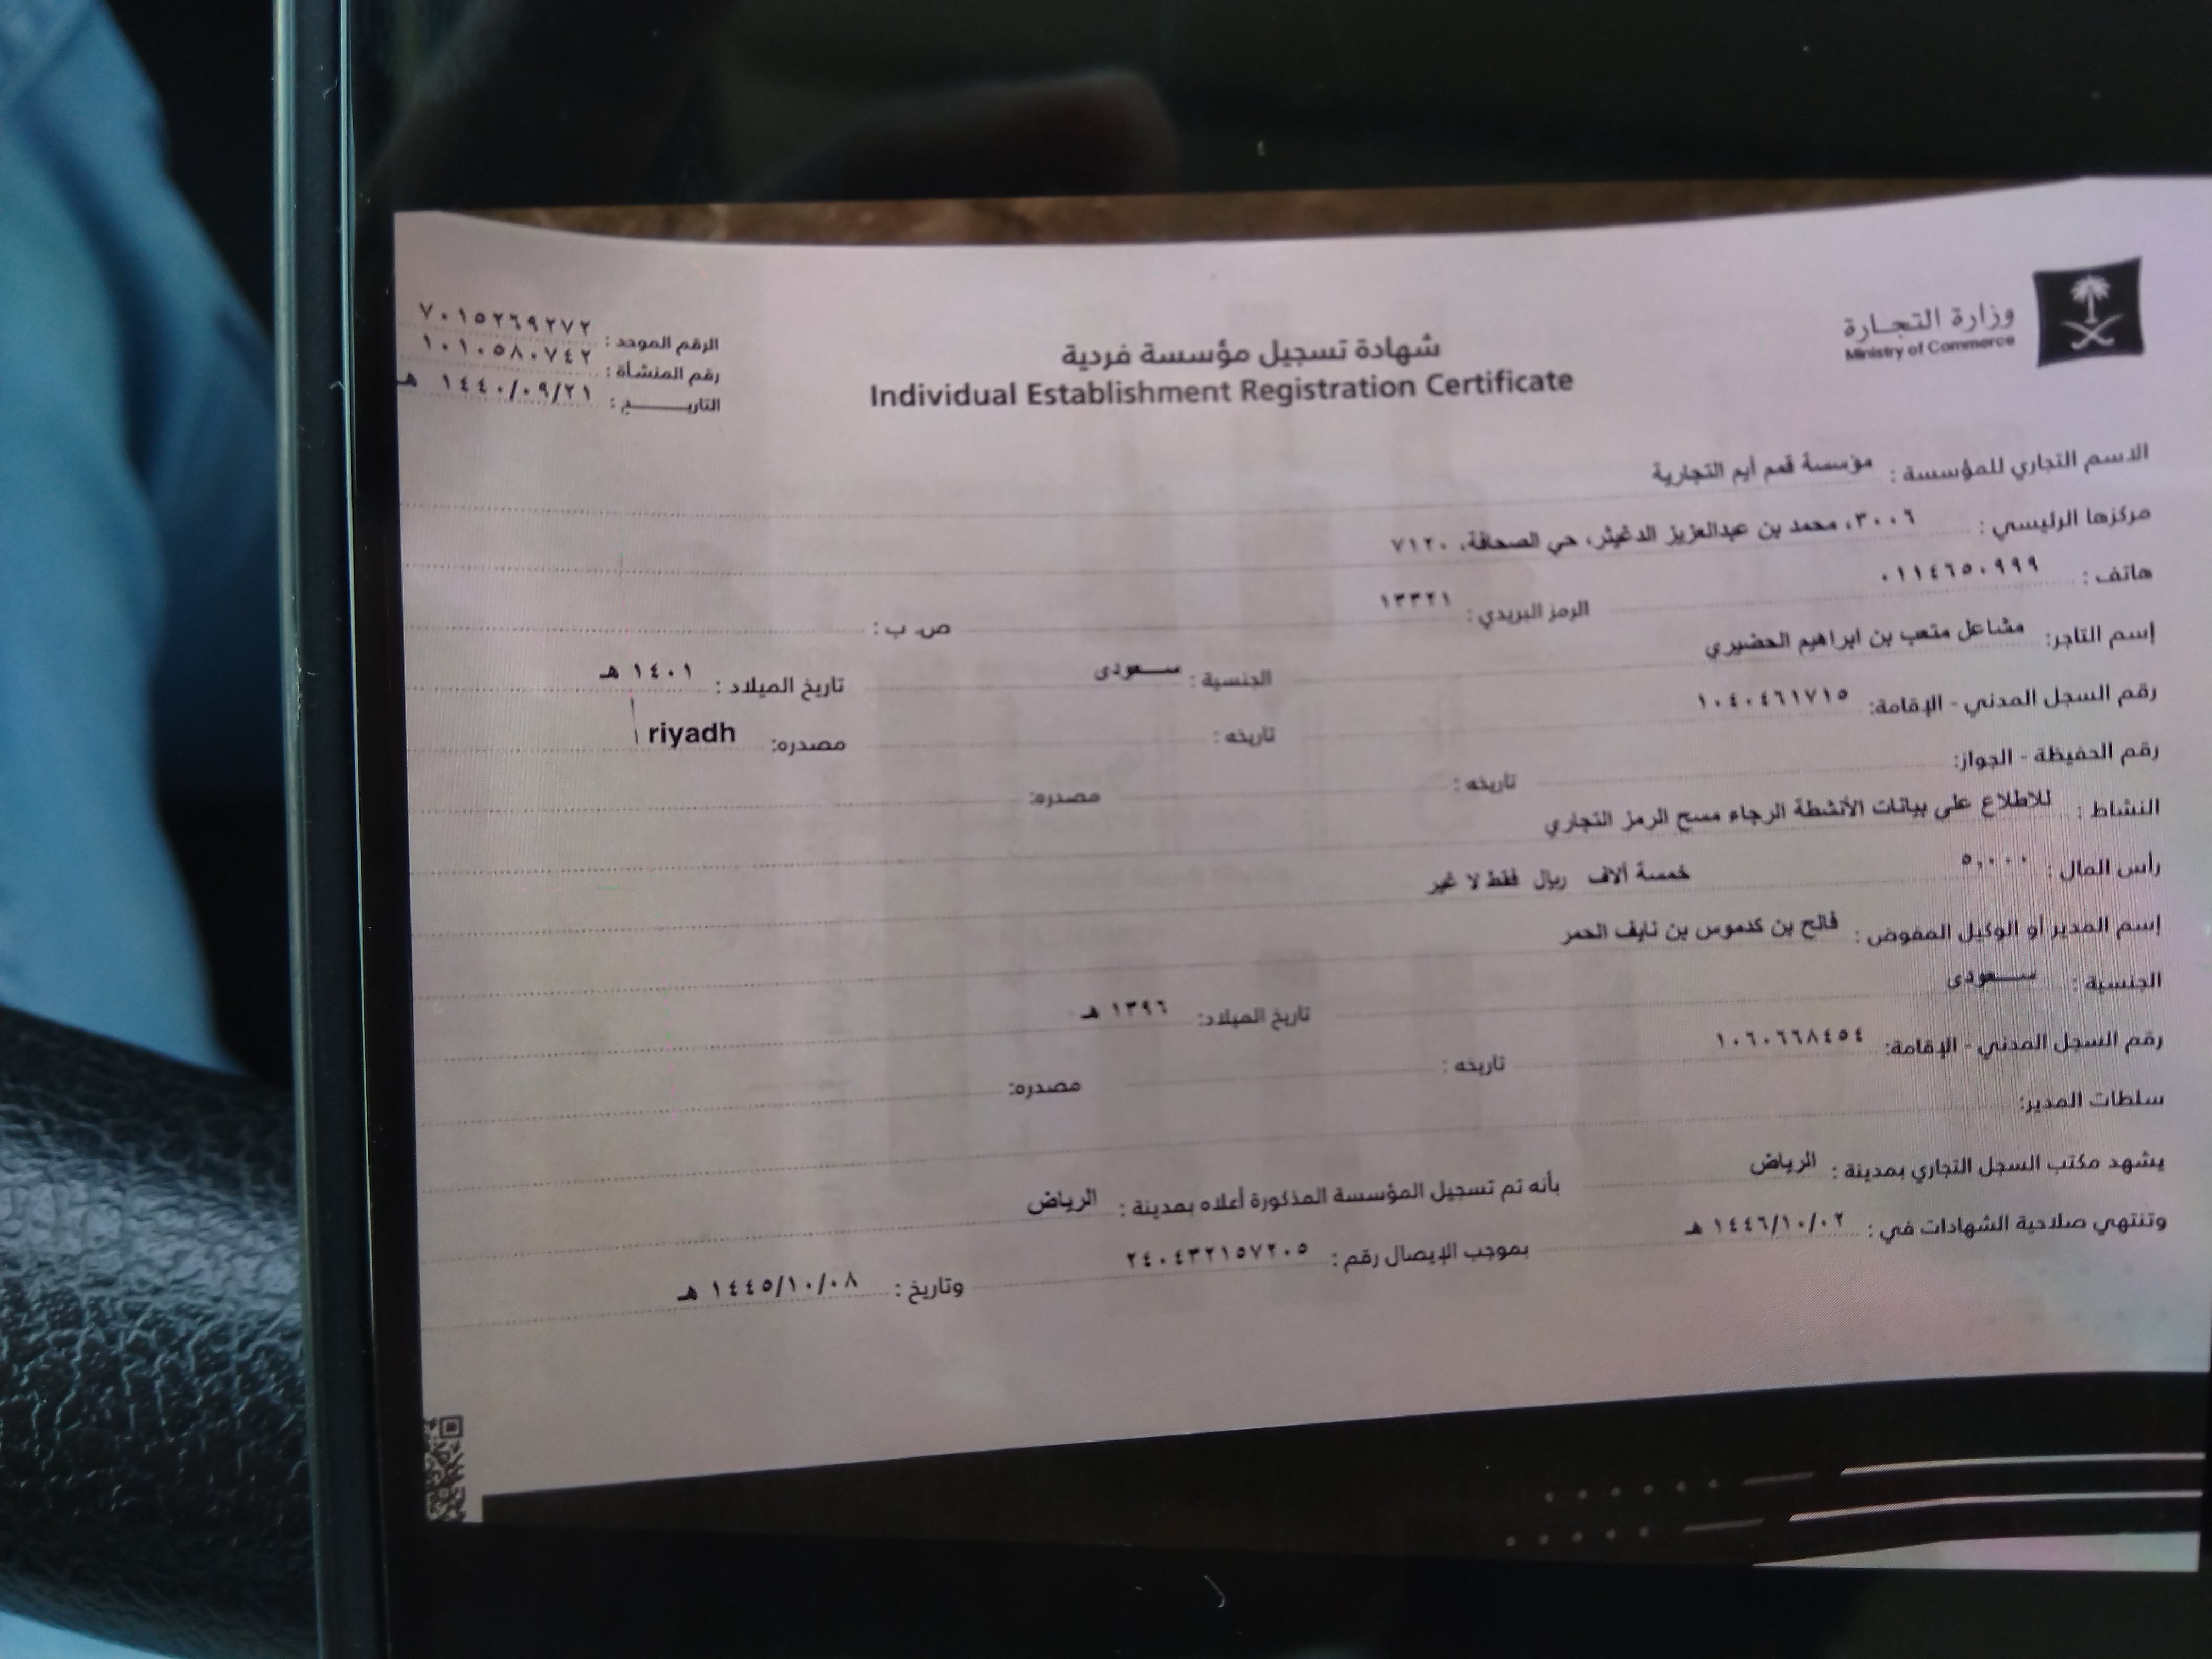 وزارة التجارة
Ministry of Commerce
شهادة تسجيل مؤسسة فردية
Individual Establishment Registration Certificate
الرقم الموحد : ٧٠١٥٢٦٩٢٧٢
رقم المنشأة : ١٠١٠٥٨٠٧٤٢
التاريـــــــخ : ١٤٤٠/٠٩/٢١ هـ
الاسم التجاري للمؤسسة : مؤسسة قمم أيم التجارية
مركزها الرئيسي : ٣٠٠٦، محمد بن عبدالعزيز الدغيثر، حي الصحافة، ٧١٢٠
هاتف : ٠١١٤٦٥٠٩٩٩ الرمز البريدي : ١٣٣٢١ ص. ب :
إسم التاجر: مشاعل متعب بن ابراهيم الحضيري الجنسية : ســـعودى تاريخ الميلاد : ١٤٠١ هـ
رقم السجل المدني - الإقامة: ١٠٤٠٤٦١٧١٥ تاريخه : مصدره: riyadh
رقم الحفيظة - الجواز: تاريخه : مصدره:
النشاط : للاطلاع على بيانات الأنشطة الرجاء مسح الرمز التجاري
رأس المال : ٥,٠٠٠ خمسة آلاف ريال فقط لا غير
إسم المدير أو الوكيل المفوض : فالح بن كدموس بن نايف الحمر
الجنسية : ســـعودى تاريخ الميلاد: ١٣٩٦ هـ
رقم السجل المدني - الإقامة: ١٠٦٠٦٦٨٤٥٤ تاريخه : مصدره:
سلطات المدير:
يشهد مكتب السجل التجاري بمدينة : الرياض بأنه تم تسجيل المؤسسة المذكورة أعلاه بمدينة : الرياض
وتنتهي صلاحية الشهادات في : ١٤٤٦/١٠/٠٢ هـ بموجب الإيصال رقم : ٢٤٠٤٣٢١٥٧٢٠٥ وتاريخ : ١٤٤٥/١٠/٠٨ هـ